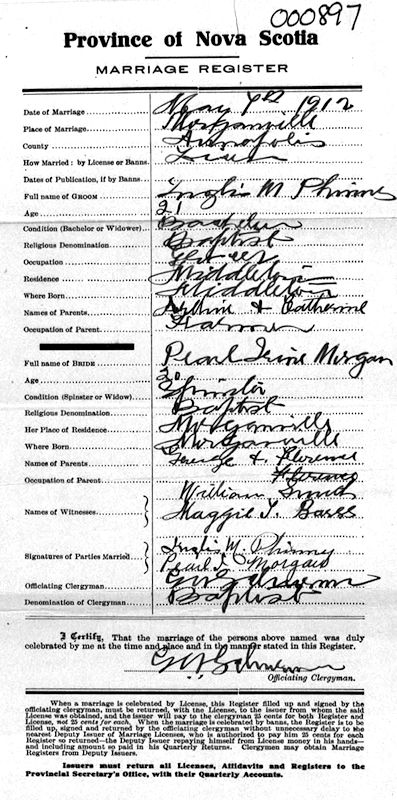 000897
Province of Nova Scotia
MARRIAGE REGISTER
Date of Marriage May 1912
Place of Marriage Morganville
County Annapolis
How Married: by License or Banns. License
Dates of Publication, if by Banns
Full name of GROOM Inglis M Phinney
Age 21
Condition (Bachelor or Widower) Bachelor
Religious Denomination Baptist
Occupation
Residence Middleton
Where Born Middleton
Names of Parents Arthur & Catherine
Occupation of Parent Farmer
Full name of BRIDE Pearl Irine Morgan
Age
Condition (Spinster or Widow) Spinster
Religious Denomination Baptist
Her Place of Residence Morganville
Where Born Morganville
Names of Parents George & Florence
Occupation of Parent
William
Names of Witnesses
Maggie
Inglis M. Phinney
Signatures of Parties Married
Pearl I. Morgan
Officiating Clergyman
Denomination of Clergyman Baptist
I Certify, That the marriage of the persons above named was duly
celebrated by me at the time and place and in the manner stated in this Register.
Officiating Clergyman.
When a marriage is celebrated by License, this Register filled up and signed by the
officiating clergyman, must be returned, with the License, to the issuer from whom the said
License was obtained, and the issuer will pay to the clergyman 25 cents for both Register and
License, not 25 cents for each. When the marriage is celebrated by banns, the Register is to be
filled up, signed and returned by the officiating clergyman without unnecessary delay to the
nearest Deputy Issuer of Marriage Licenses, who is authorized to pay him 25 cents for each
Register so returned—the Deputy Issuer repaying himself from License money in his hands—
and including amount so paid in his Quarterly Returns. Clergymen may obtain Marriage
Registers from Deputy Issuers.
Issuers must return all Licenses, Affidavits and Registers to the
Provincial Secretary's Office, with their Quarterly Accounts.